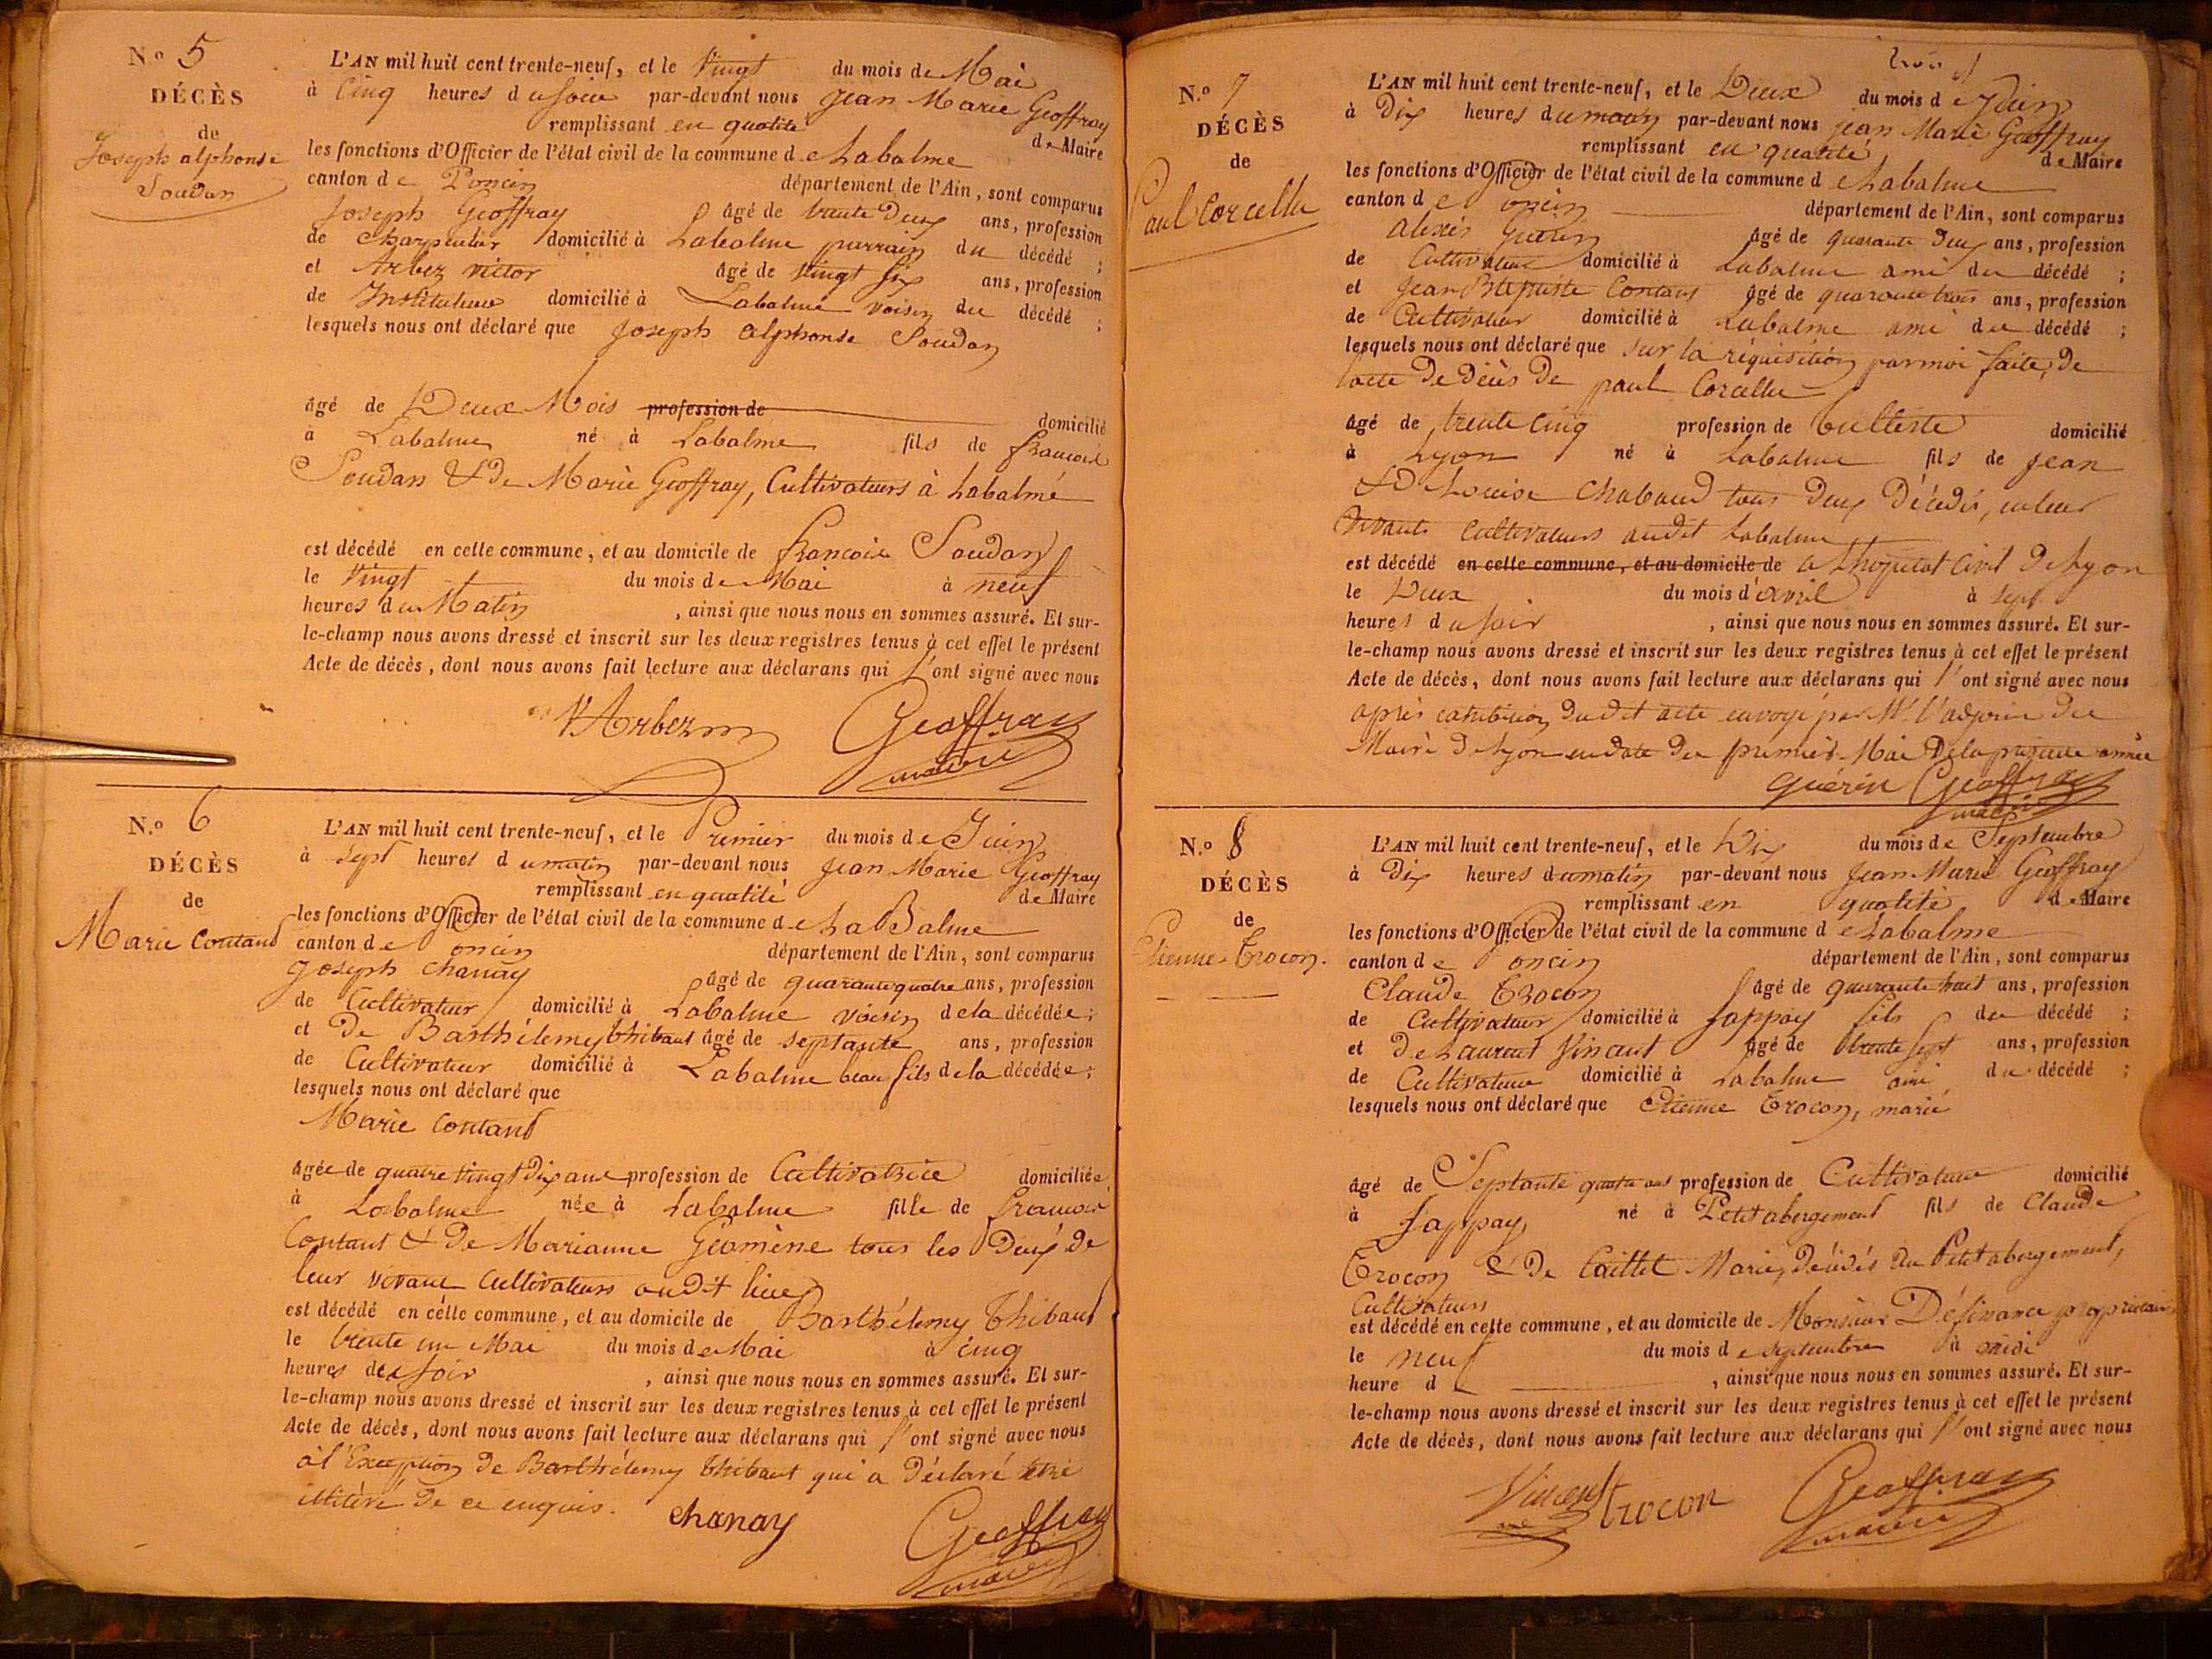 N.º 5
DÉCÈS
de
Joseph alphonse
Soudan
L'AN mil huit cent trente-neuf, et le Vingt du mois de Mai
à Cinq heures du soir par-devant nous Jean Marie Geoffray
remplissant en qualité de Maire
les fonctions d'Officier de l'état civil de la commune de Labalme
canton de Poncin département de l'Ain, sont comparus
Joseph Geoffray âgé de trente Deux ans, profession
de Charpentier domicilié à Labalme parrain du décédé ;
et Arbez victor âgé de vingt six ans, profession
de Instituteur domicilié à Labalme voisin du décédé ;
lesquels nous ont déclaré que Joseph alphonse Soudan
âgé de Deux Mois profession de domicilié
à Labalme né à Labalme fils de francois
Soudan & De Marie Geoffray, Cultivateurs à Labalme
est décédé en cette commune, et au domicile de francois Soudan
le Vingt du mois de Mai à neuf
heures du Matin , ainsi que nous nous en sommes assuré. Et sur-
le-champ nous avons dressé et inscrit sur les deux registres tenus à cet effet le présent
Acte de décès, dont nous avons fait lecture aux déclarans qui l'ont signé avec nous
VArbez Geoffray
maire
N.º 6
DÉCÈS
de
Marie Contant
L'AN mil huit cent trente-neuf, et le Premier du mois de Juin
à sept heures du matin par-devant nous Jean Marie Geoffray
remplissant en qualité de Maire
les fonctions d'Officier de l'état civil de la commune de La Balme
canton de Poncin département de l'Ain, sont comparus
Joseph Chanay âgé de quarante quatre ans, profession
de Cultivateur domicilié à Labalme voisin de la décédée ;
et De Barthélemy Thibaut âgé de septante ans, profession
de Cultivateur domicilié à Labalme beau fils de la décédée ;
lesquels nous ont déclaré que
Marie Contant
âgée de quatre vingt Dix ans profession de Cultivatrice domiciliée
à Labalme née à Labalme fille de francois
Contant & De Marianne tous les Deux de
leur vivant Cultivateurs audit lieu
est décédé en cette commune, et au domicile de Barthélemy Thibaut
le trente un Mai du mois de Mai à cinq
heures du soir , ainsi que nous nous en sommes assuré. Et sur-
le-champ nous avons dressé et inscrit sur les deux registres tenus à cet effet le présent
Acte de décès, dont nous avons fait lecture aux déclarans qui l'ont signé avec nous
à l'Exception de Barthélemy Thibaut qui a Déclaré être
illitéré De ce enquis. Chanay Geoffray
maire
trois
N.º 7
DÉCÈS
de
Paul Corcellu
L'AN mil huit cent trente-neuf, et le Deux du mois de Juin
à Dix heures du matin par-devant nous jean Marie Geoffray
remplissant en qualité de Maire
les fonctions d'Officier de l'état civil de la commune de Labalme
canton de Poncin département de l'Ain, sont comparus
Alexis Guérin âgé de quarante Deux ans, profession
de Cultivateur domicilié à Labalme ami du décédé ;
et Jean Baptiste Contant âgé de quarante trois ans, profession
de Cultivateur domicilié à Labalme ami du décédé ;
lesquels nous ont déclaré que sur la réquisition par moi faite, De
l'acte De Décès De paul Corcellu
âgé de trente cinq profession de tulliste domicilié
à Lyon né à Labalme fils de jean
& D Louise Chabaud tous Deux Décédés, en leur
Vivants cultivateurs audit Labalme
est décédé en cette commune, et au domicile de a Lhopital Civil De Lyon
le Deux du mois d'avril à sept
heures du soir , ainsi que nous nous en sommes assuré. Et sur-
le-champ nous avons dressé et inscrit sur les deux registres tenus à cet effet le présent
Acte de décès, dont nous avons fait lecture aux déclarans qui l'ont signé avec nous
après exhibition Dudit acte envoyé par Mr L'adjoint Du
Maire De Lyon en date Du premier Mai De la présente année
Guérin Geoffray
maire
N.º 8
DÉCÈS
de
Etienne Trocon.
L'AN mil huit cent trente-neuf, et le Dix du mois de Septembre
à Dix heures du matin par-devant nous Jean Marie Geoffray
remplissant en qualité de Maire
les fonctions d'Officier de l'état civil de la commune de Labalme
canton de Poncin département de l'Ain, sont comparus
Claude Trocon âgé de quarante huit ans, profession
de Cultivateur domicilié à fils du décédé ;
et De Laurent Vincent âgé de trente sept ans, profession
de Cultivateur domicilié à Labalme ami du décédé ;
lesquels nous ont déclaré que Etienne Trocon, marié
âgé de Septante quatre ans profession de Cultivateur domicilié
à né à Petit abergement fils de Claude
Trocon & De Caillet Marie, Décédés au Petit abergement,
Cultivateurs
est décédé en cette commune, et au domicile de Monsieur propriétaire
le neuf du mois de septembre à midi
heure d , ainsi que nous nous en sommes assuré. Et sur-
le-champ nous avons dressé et inscrit sur les deux registres tenus à cet effet le présent
Acte de décès, dont nous avons fait lecture aux déclarans qui l'ont signé avec nous
Vincent trocon Geoffray
maire